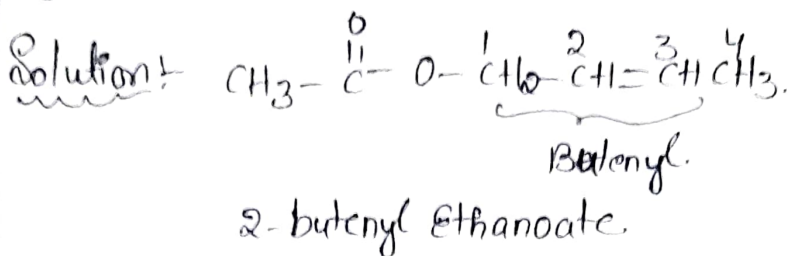 O
Solution:- CH3 - C - O - CH2 - CH = CH CH3.
1 2 3 4
Butenyl.
2-butenyl Ethanoate.